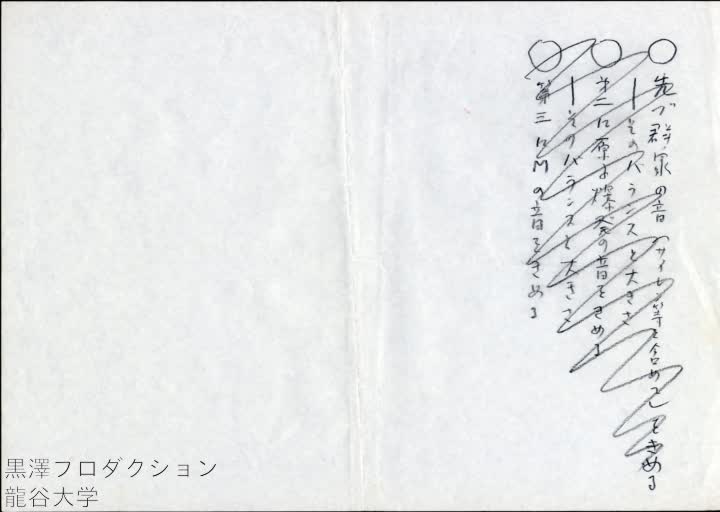 ○先づ群衆の音(サイレン等も含めて)をきめる
―そのバランスと大きさ
○第二に原子爆発の音をきめる
―そのバランスと大きさ
○第三にMの音をきめる
黒澤プロダクション
龍谷大学